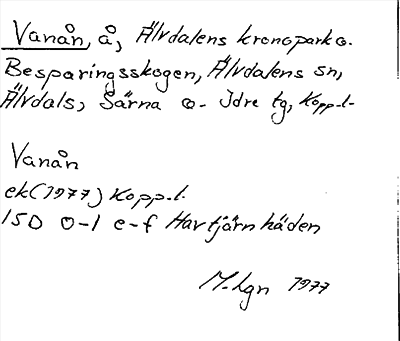 Vanån, å, Älvdalens kronopark o.
Besparingsskogen, Älvdalens sn,
Älvdals, Särna o. Idre tg, Kopp.l.
Vanån
ek(1977) Kopp.l.
15D 0-1 e-f Hartjärnhäden
M.Lgn 1977